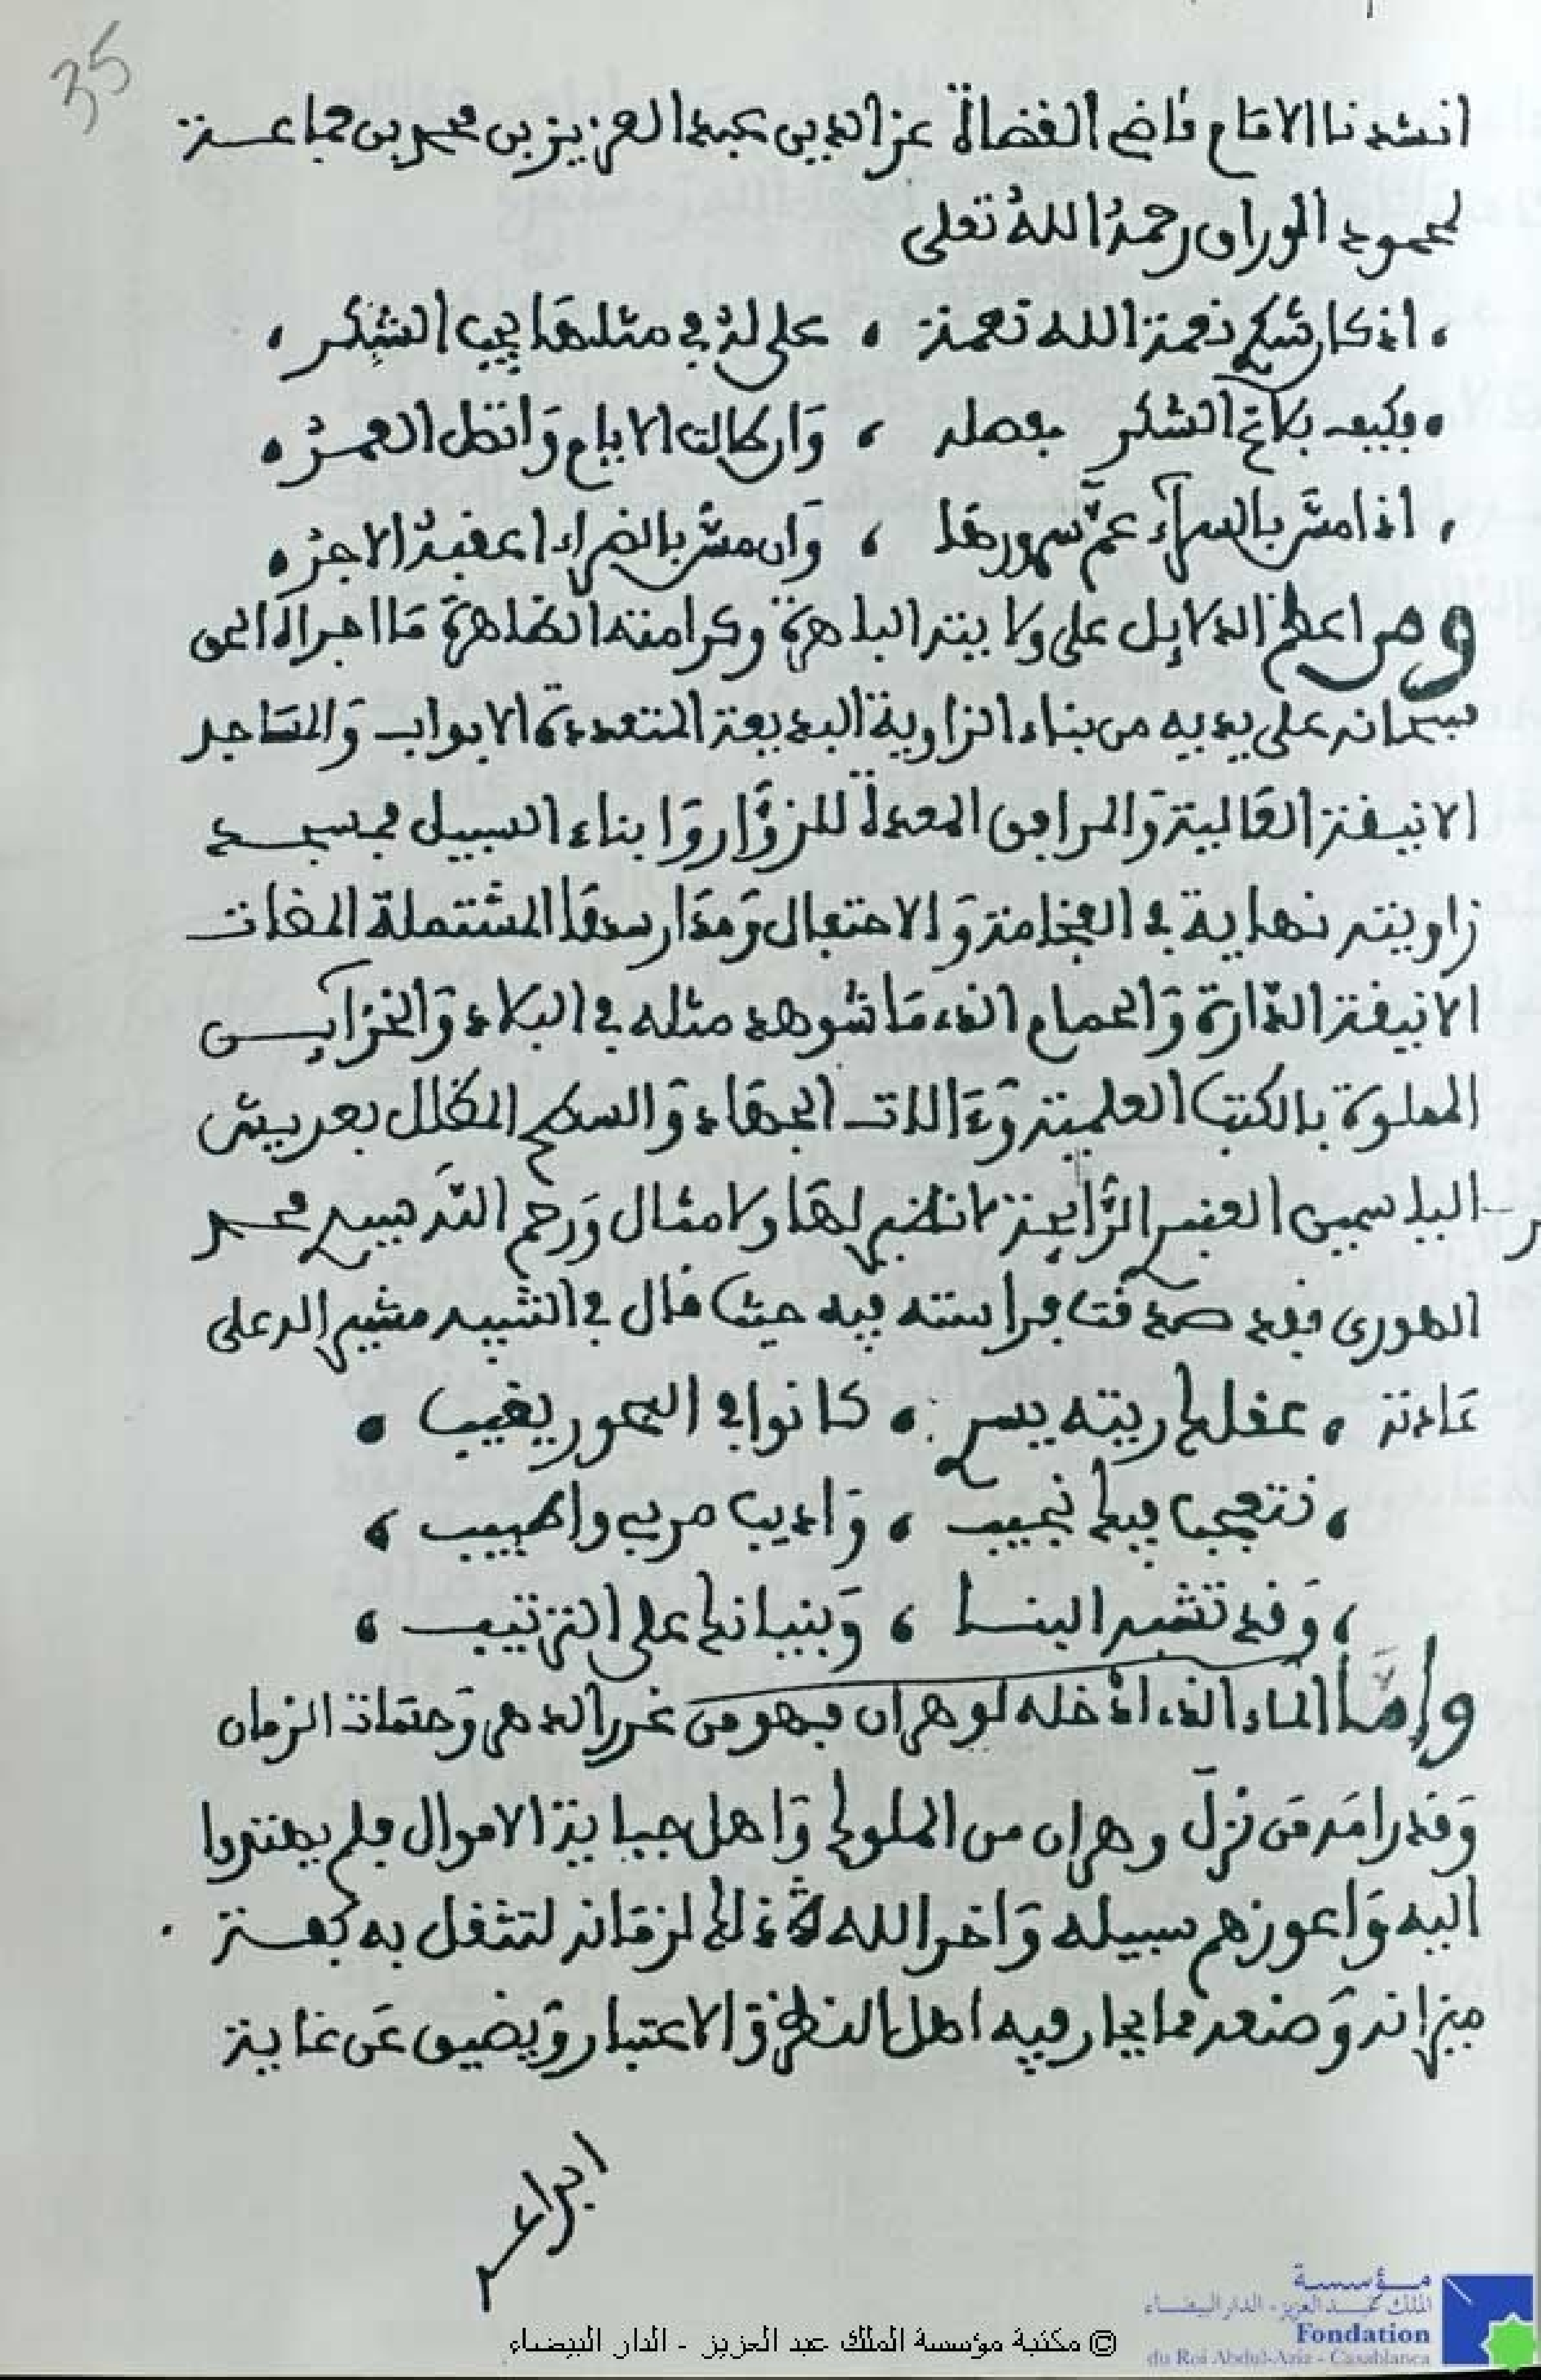 35
انشدنا الامام قاضي القضاة عز الدين عبد العزيز بن محمد بن جماعة
لمحمود الوراق رحمه الله تعلى
، اذ كان شكري نعمة الله نعمة ، علي له في مثلها يجب الشكر ،
، وكيف بلاغ الشكر بفضله ، وان طالت الايام واتصل العمر ،
، اذا مس بالسراء عم سرورها ، وان مس بالضراء اعقبه الاجر ،
ومن اعظم الدلايل على ولايته الباهرة وكرامته الظاهرة ما اجراه الحق
سبحانه على يديه من بناء الزاوية البديعة المتعددة الابواب والمساجد
الانيفة العالية والمرافق المعدة للزوار وابناء السبيل فمسجد
زاويته نهاية في الفخامة والاحتفال ومدارسها المشتملة المغات
الانيفة الدارة والحمام الذي ما شوهد مثله في البلاد والخزآيــن
المملوة بالكتب العلمية وءالات الجهاد والسطح المظلل بعريش
الياسمين العنبر الرايحة لا نظير لها ولا مثال ورحم الله سيد محمد
الهوري فقد صدقت فراسته فيه حيث قال في التشييد مشير اله على
عادته ، عفلك ريته يسر ، كانوا في البحور يغيب ،
، نتعجب فيك نجيب ، واديب مربي واطبيب ،
، وقد تتقبر البنا ، وبنيانك على الترتيب ،
واما الماء الذي ادخله لوهران فهو من غرر الدهر وحسنات الزمان
وقد رامه من نزل وهران من الملوك واهل جباية الاموال فلم يهتدوا
اليه واعوزهم سبيله واخر الله ذلك لزمانه لتثقل به كفة
ميزانه وصنعه مما يحار فيه اهل النظر والاعتبار ويضيق عن غاية
ابراء
© مكتبة مؤسسة الملك عبد العزيز - الدار البيضاء
مؤسسة
الملك عبد العزيز - الدار البيضاء
Fondation
du Roi Abdul-Aziz - Casablanca